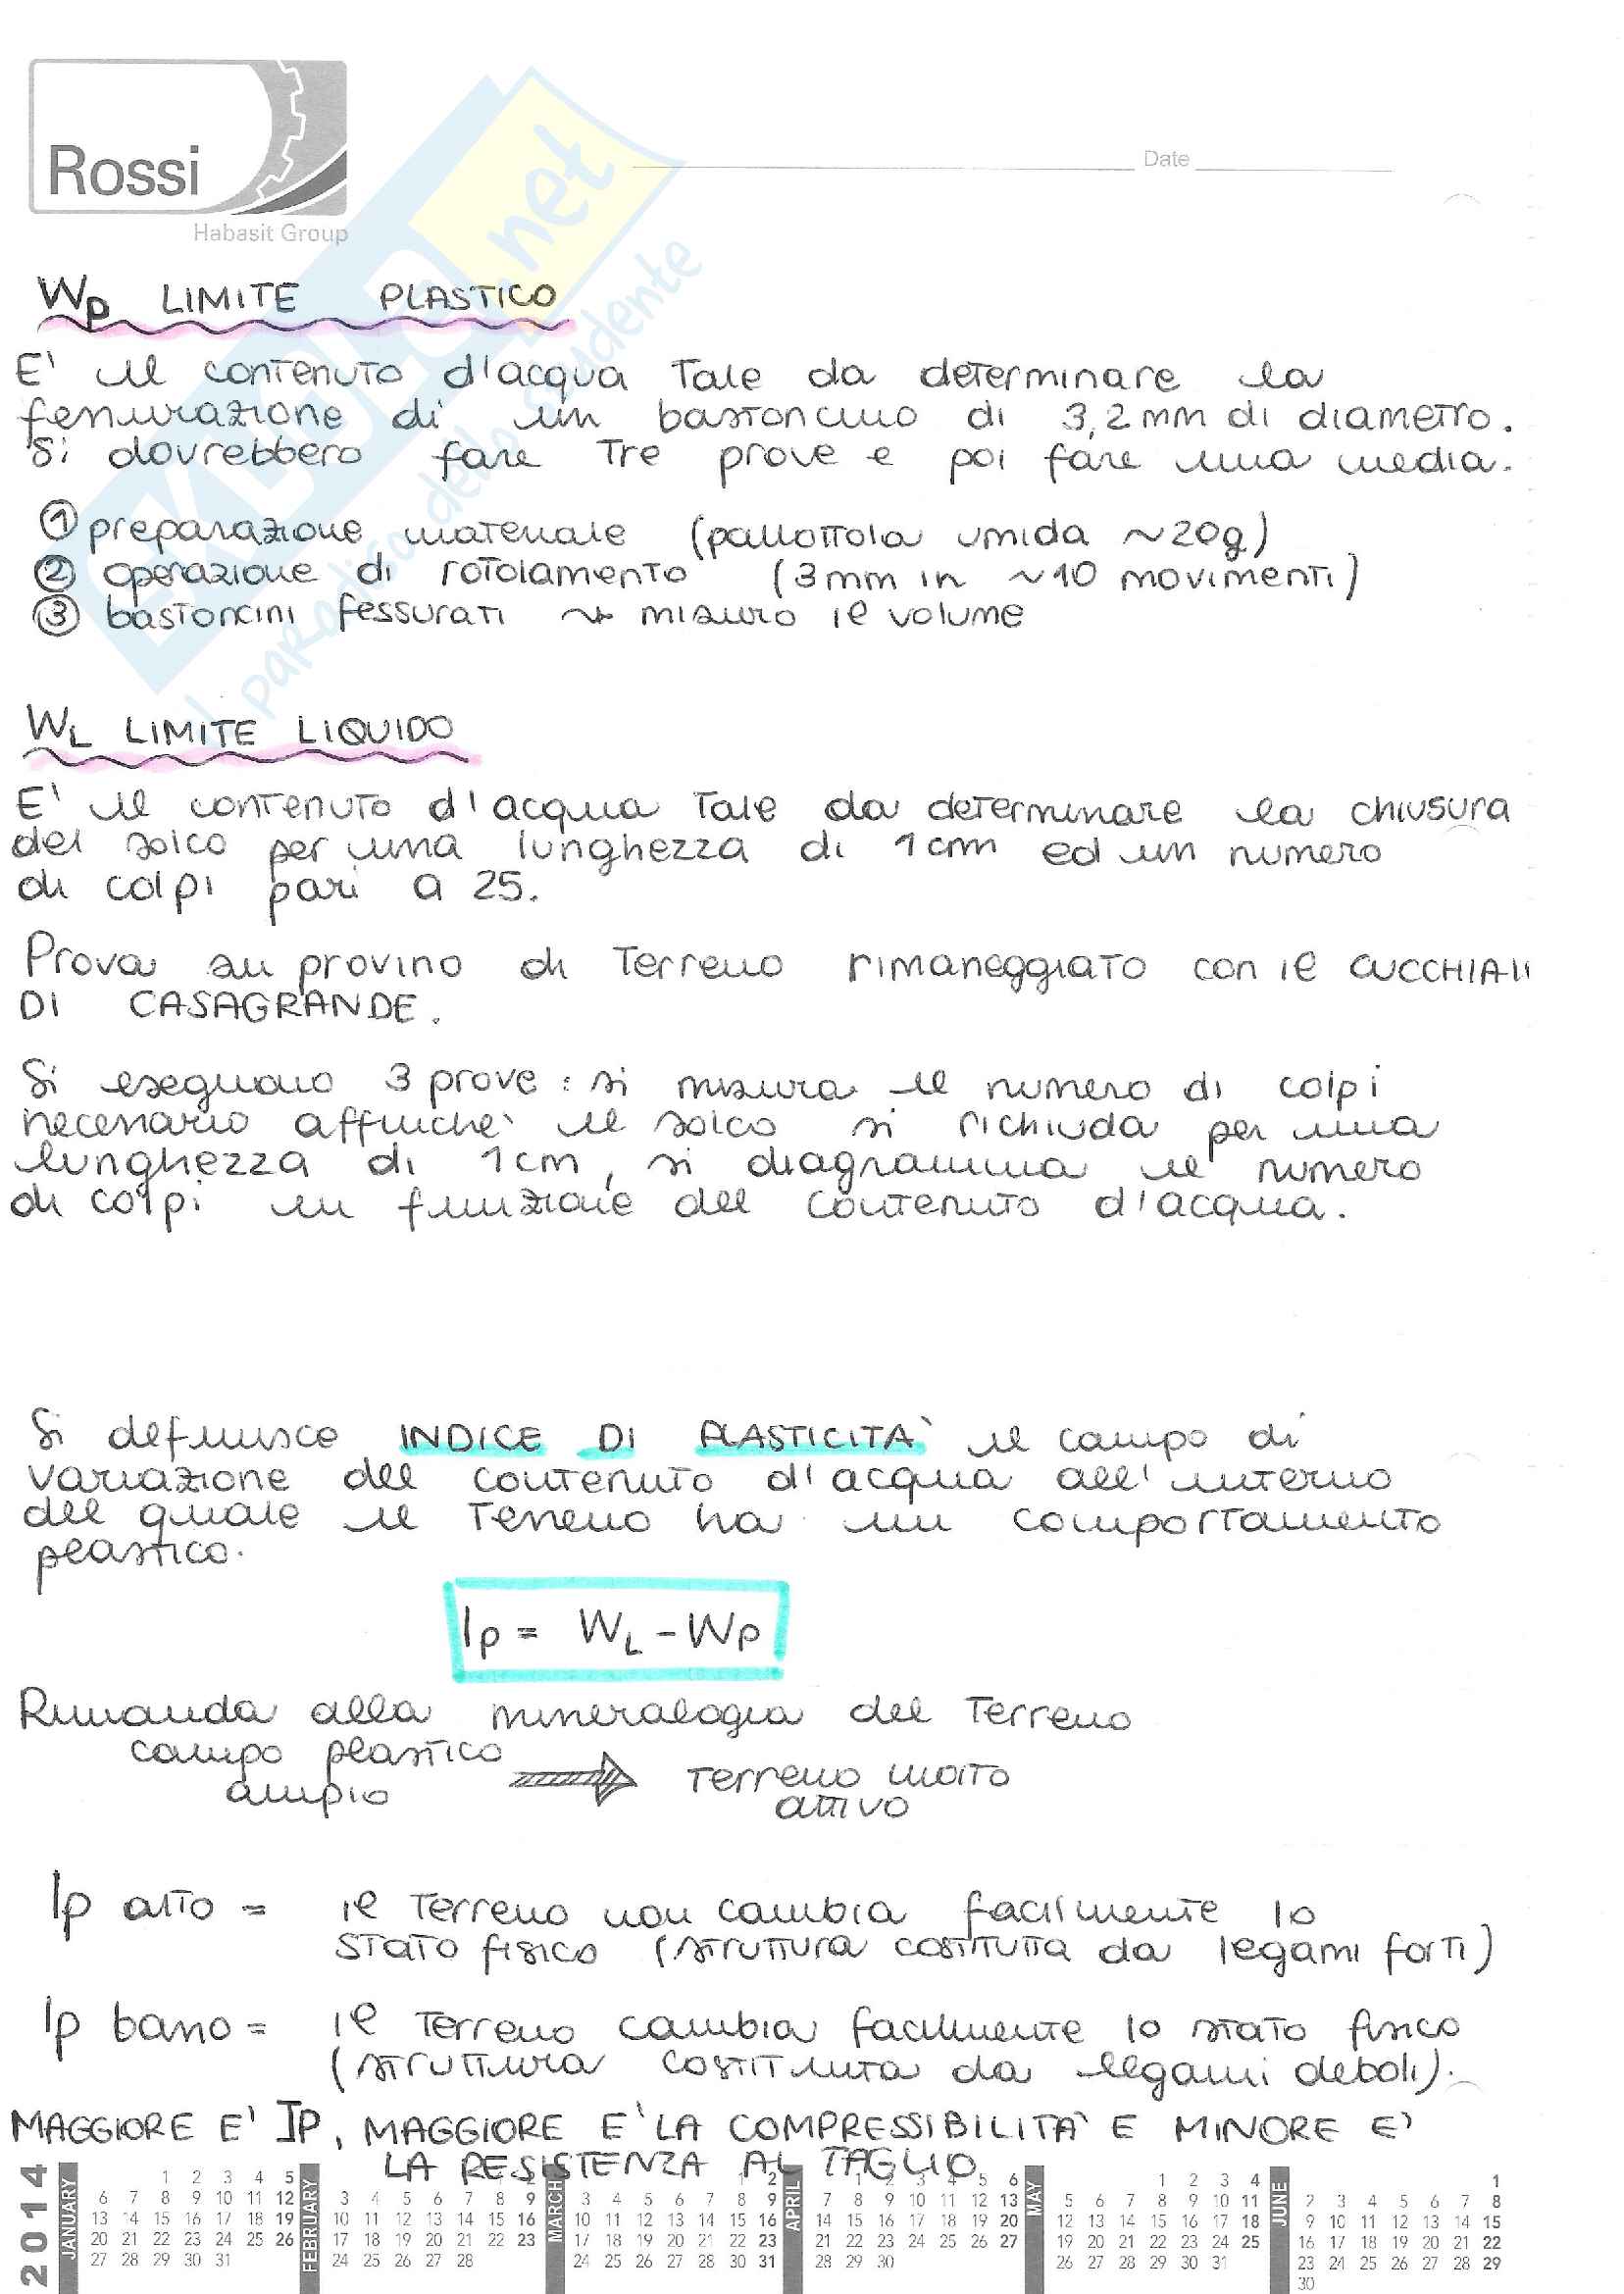 Rossi
Habasit Group
Date
SKUOLA.net
il paradiso dello studente
Wp LIMITE PLASTICO
E' il contenuto d'acqua tale da determinare la
fessurazione di un bastoncino di 3,2 mm di diametro.
Si dovrebbero fare tre prove e poi fare una media.
① preparazione materiale (pallottola umida ~20g)
② operazione di rotolamento (3mm in ~10 movimenti)
③ bastoncini fessurati → misuro il volume
WL LIMITE LIQUIDO
E' il contenuto d'acqua tale da determinare la chiusura
del solco per una lunghezza di 1cm ed un numero
di colpi pari a 25.
Prova su provino di terreno rimaneggiato con il CUCCHIAIO
DI CASAGRANDE.
Si eseguono 3 prove: si misura il numero di colpi
necessario affinché il solco si richiuda per una
lunghezza di 1cm, si diagramma il numero
di colpi in funzione del contenuto d'acqua.
Si definisce INDICE DI PLASTICITÀ il campo di
variazione del contenuto d'acqua all'interno
del quale il terreno ha un comportamento
plastico.
Ip = WL - Wp
Rimanda alla mineralogia del terreno
campo plastico
ampio
→ terreno molto
attivo
Ip alto = il terreno non cambia facilmente lo
stato fisico (struttura costituita da legami forti)
Ip basso = il terreno cambia facilmente lo stato fisico
(struttura costituita da legami deboli).
MAGGIORE E' IP, MAGGIORE E' LA COMPRESSIBILITA' E MINORE E'
LA RESISTENZA AL TAGLIO
2014
JANUARY
1 2 3 4 5
6 7 8 9 10 11 12
13 14 15 16 17 18 19
20 21 22 23 24 25 26
27 28 29 30 31
FEBRUARY
3 4 5 6 7 8 9
10 11 12 13 14 15 16
17 18 19 20 21 22 23
24 25 26 27 28
MARCH
1 2
3 4 5 6 7 8 9
10 11 12 13 14 15 16
17 18 19 20 21 22 23
24 25 26 27 28 30 31
APRIL
1 2 3 4 5 6
7 8 9 10 11 12 13
14 15 16 17 18 19 20
21 22 23 24 25 26 27
28 29 30
MAY
1 2 3 4
5 6 7 8 9 10 11
12 13 14 15 16 17 18
19 20 21 22 23 24 25
26 27 28 29 30 31
JUNE
1
2 3 4 5 6 7 8
9 10 11 12 13 14 15
16 17 18 19 20 21 22
23 24 25 26 27 28 29
30